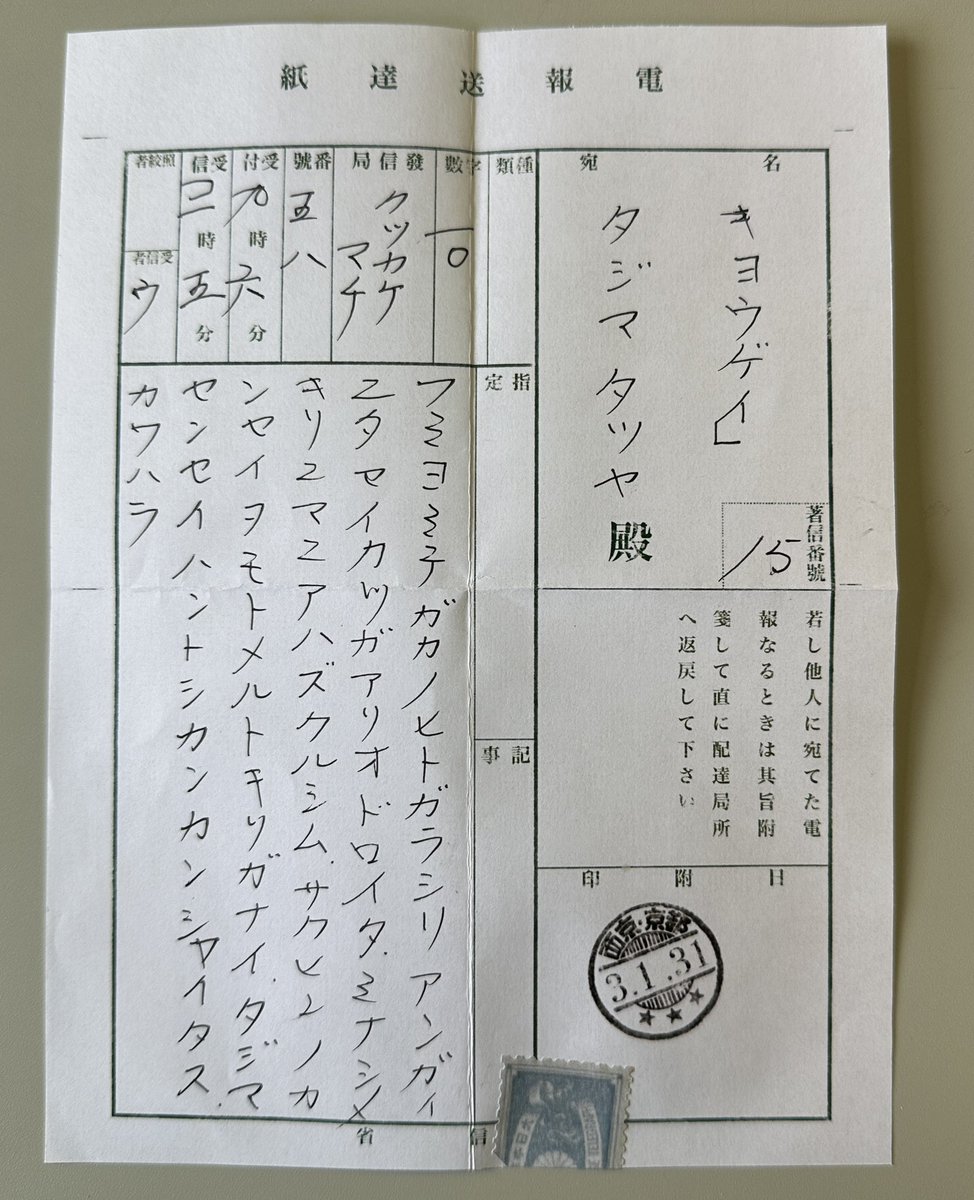 電報送達紙
名宛
キヨウゲイ」
タジマタツヤ 殿
著信番號
15
若し他人に宛てた電
報なるときは其旨附
箋して直に配達局所
へ返戻して下さい
日附印
西京・京都
3.1.31
種類
字數
一〇
發信局
クツカケ
マチ
番號
五八
受付
九時六分
受信
三時五分
照絞者
受信者
ウ
指定
記事
フミヨミテガカノヒトガラシリアンガイ
ニタセイカツガアリオドロイタ.ミナシメ
キリニマニアハズクルシム.サクヒンノカ
ンセイヲモトメルトキリガナイ.タジマ
センセイハントシカンカンシヤイタス.
カワハラ
信省